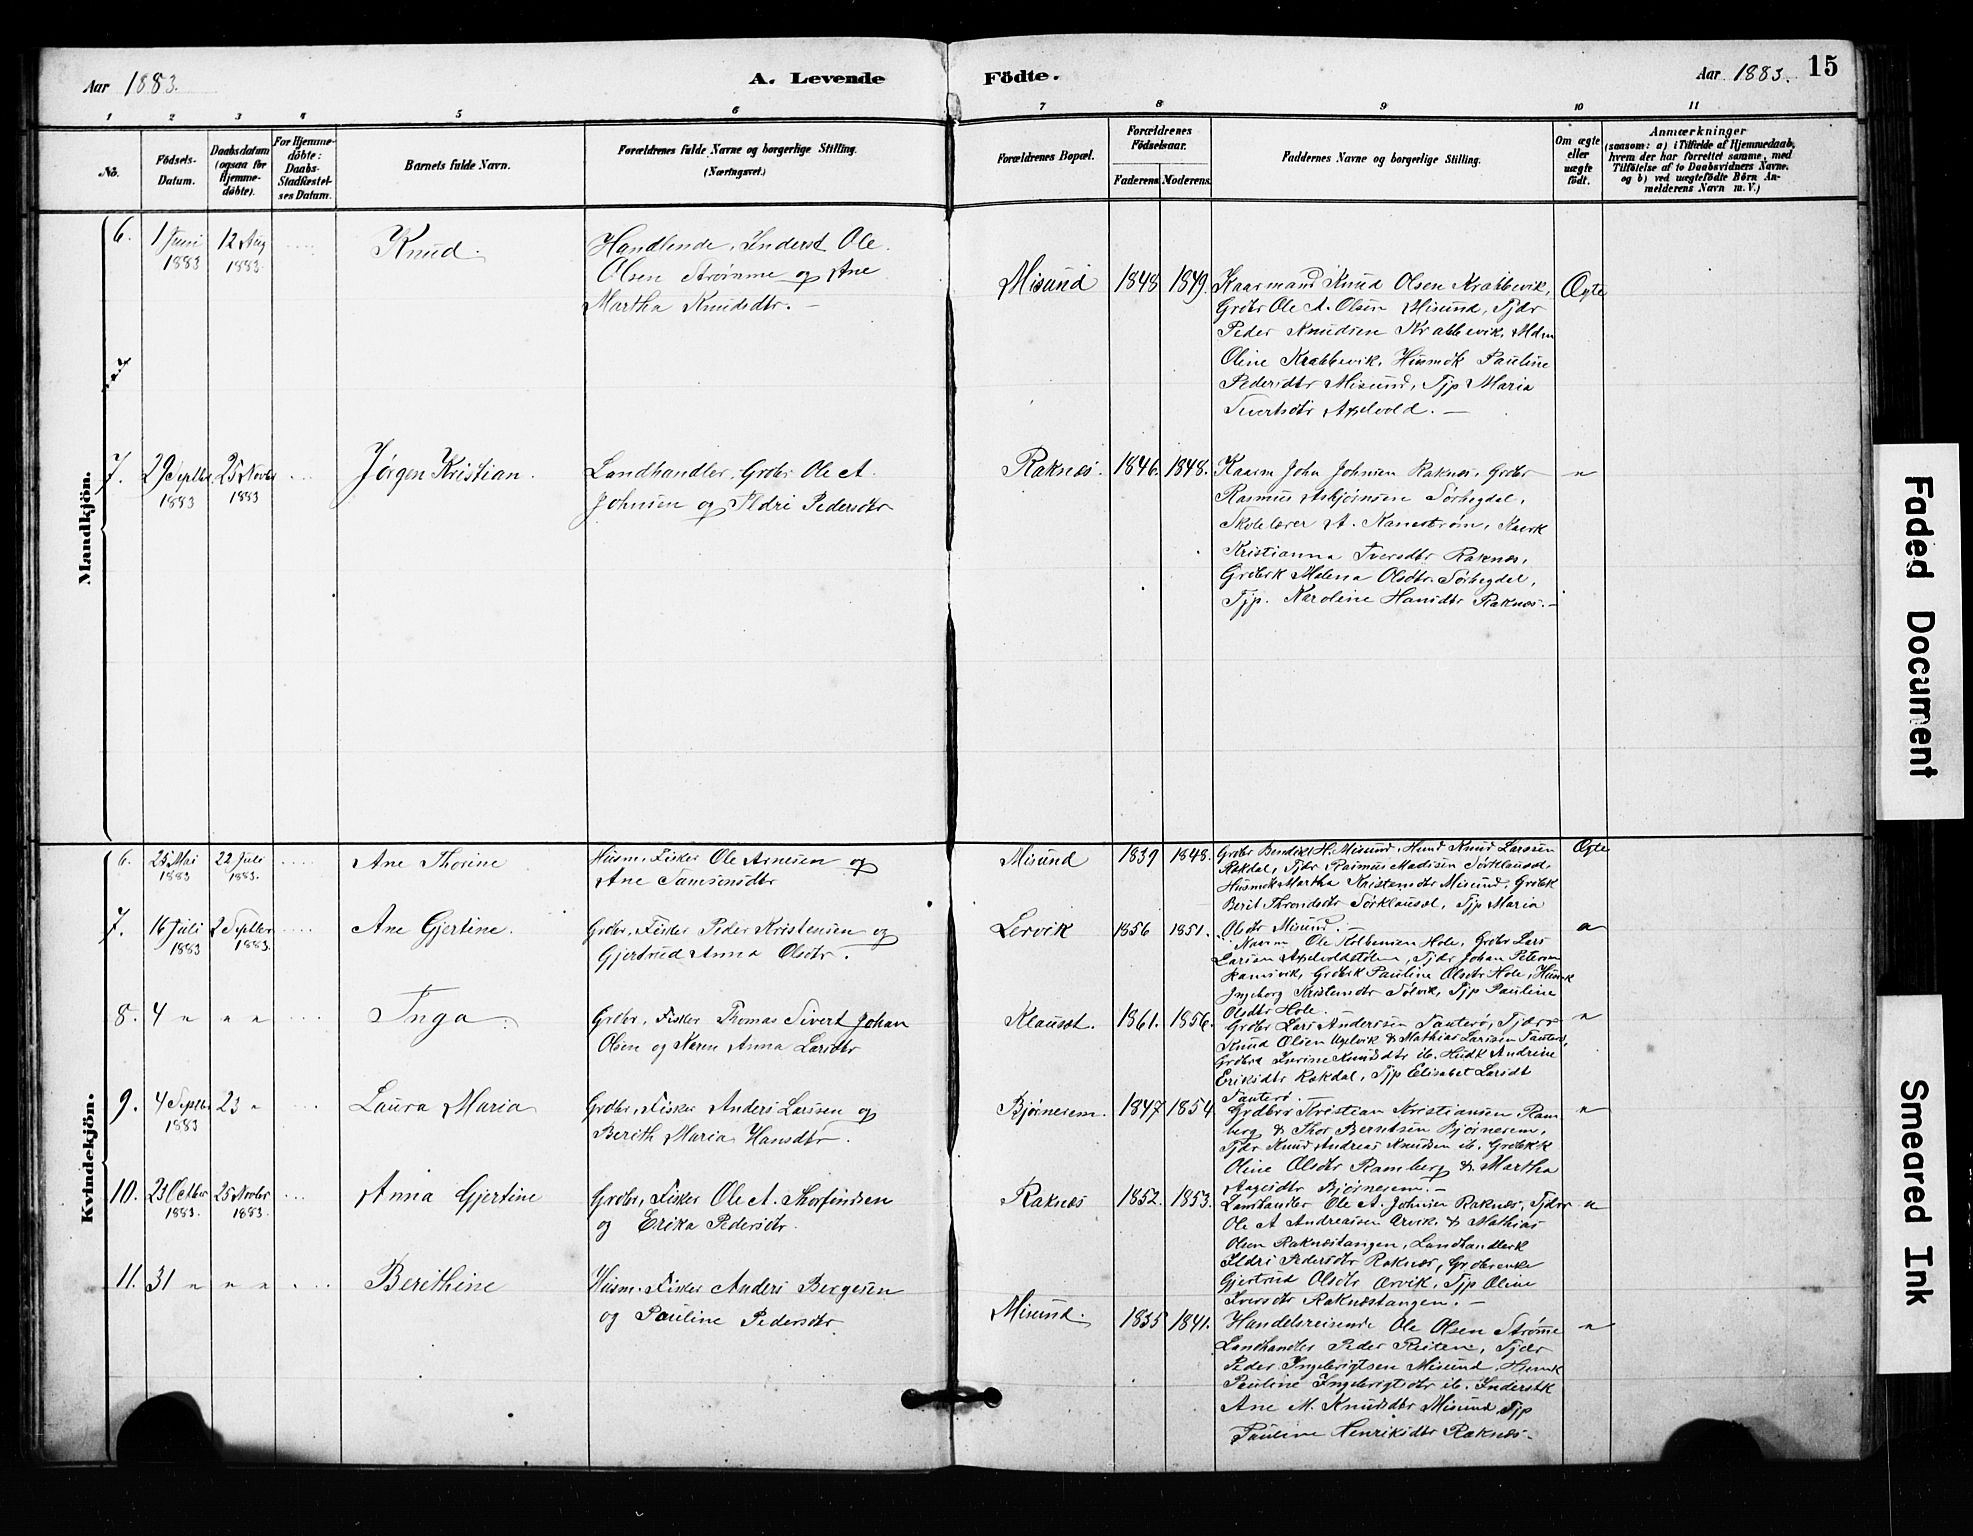 Aar 1883.
A. Levende Födte.
Aar 1883. 15
1 2 3 4 5 6 7 8 9 10 11
No.
Födsels-
Datum.
Daabsdatum
(ogsaa for
Hjemme-
döbte).
For Hjemme-
döbte:
Daabs-
Stadfæstel-
ses Datum.
Barnets fulde Navn.
Forældrenes fulde Navne og borgerlige Stilling.
(Næringsvei.)
Forældrenes Bopæl.
Forældrenes
Födselsaar.
Faderens. Moderens.
Faddernes Navne og borgerlige Stilling.
Om ægte
eller
uægte
födt.
Anmærkninger
(saasom: a) i Tilfælde af Hjemmedaab,
hvem der har forrettet samme, med
Tilföielse af to Daabsvidners Navne,
og b) ved uægtefödte Börn An-
melderens Navn m. V.)
Mandkjön.
6. 1 Juni 1883 12 Aug 1883. Knud.
Handlende, Inderst Ole
Olsen Strømme og Ane
Martha Knudsdtr. —
Misund 1848 1849.
Kaarmand Knud Olsen Krabbevik,
Grdbr Ole A. Olsen Misund, Tjdr
Peder Knudsen Krabbevik,
Oline Krabbevik, Husmdk Pauline
Pedersdtr Misund, Tjp Maria
Sivertsdtr Axelvold. —
Ægte
7. 29 Septbr 1883 25 Novbr 1883 Jørgen Kristian.
Landhandler, Grdbr Ole A.
Johnsen og Ildri Pedersdtr
Raknæs. 1846. 1848.
Kaarm John Johnsen Raknæs, Grdbr
Rasmus Asbjørnsen Sørhegdal,
Skolelærer A. Kanestrøm, Kaark
Kristianna Iversdtr Raknæs,
Grdbrk Malena Olsdtr Sørhegdal,
Tjp. Karoline Hansdtr Raknæs. —
"
Kvindekjön.
6. 25 Mai 1883 22 Juli 1883. Ane Thorine
Husm. Fisker Ole Arnesen og
Ane Samsonsdtr
Misund 1839 1848.
Grdbr Bendik H. Misund, Husmd Knud Larssen
Rakdal, Tjdr, Rasmus Madsen Sørklauset
Husmdk Martha Kristensdtr Misund, Grdbrk
Berit Throndsdtr Sørklauset, Tjp Maria
Olsdtr Misund. —
Ægte
7. 16 Juli 1883 2 Septbr 1883. Ane Gjertine.
Grdbr, Fisker Peder Kristensen og
Gjertrud Anna Olsdtr.
Lervik 1856 1851.
Kaarm Ole Kolbensen Hole, Grdbr Lars
Larsen Axelvoldstølen, Tjdr Johan Petersen
Ramsvik, Grdbrk Pauline Olsdtr Hole, Husmk
Ingeborg Kristensdtr Sølvik, Tjp Pauline
Olsdtr Hole.
"
8. 4 " " " Inga.
Grdbr, Fisker Thomas Sivert Johan
Olsen og Karen Anna Larsdtr
Klauset. 1861. 1856.
Grdbr Lars Anderssen Tauterø, Tjdr
Knud Olsen Apelvik & Mathias Larssen Tauterø,
Grdbrk Inrine Knudsdtr ib. Husdk Andrine
Eriksdtr Rakdal, Tjp Elisabet Larsdt
Tauterø.
"
9. 4 Septbr 1883 23 " Laura Maria
Grdbr, Fisker Anders Larssen og
Berith Maria Hansdtr.
Bjørnerem. 1847 1854
Grdbrs Kristian Kristiansen Ram
berg & Thor Berntsen Bjørnerem,
Tjdr Knud Andreas Knudsen ib. Grdbrkk
Oline Olsdtr Ramberg & Martha
Aagesdtr Bjørnerem. —
"
10. 23 Octbr 1883. 25 Novbr 1883. Anna Gjertine
Grdbr, Fisker Ole A. Thorfindsen
og Erika Pedersdtr.
Raknæs 1852. 1853.
Landhandler Ole A. Johnsen Raknæs, Tjdr
Ole A Andreassen Ørvik, & Mathias
Olsen Raknæstangen, Landhandlerk
Ildri Pedersdtr Raknæs, Grdbrenke
Gjertrud Olsdtr Ørvik, Tjp Oline
Iversdtr Raknæstangen. —
"
11. 31 " " " Berithine
Husm. Fisker Anders Bergesen
og Pauline Pedersdtr
Misund. 1835 1841.
Handelsreisende Ole Olsen Strømme
Landhandler Peder Reiten, Tjdr
Peder Ingebrigtsen Misund, Husmk
Pauline Ingebrigtsdtr ib. Inderstk
Ane M. Knudsdtr Misund Tjp
Pauline Henriksdtr Raknæs.
"
Faded Document
Smeared Ink